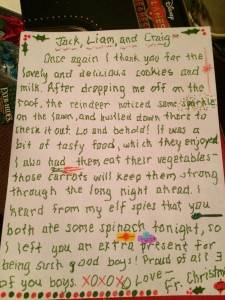 Jack, Liam, and Craig
Once again I thank you for the
lovely and delicious cookies and
milk. After dropping me off on the
roof, the reindeer noticed some sparkle
on the lawn, and hustled down there to
check it out. Lo and behold! It was a
bit of tasty food, which they enjoyed.
I also had them eat their vegetables-
those carrots will keep them strong
through the long night ahead. I
heard from my elf spies that you
both ate some spinach tonight, so
I left you an extra present for
being such good boys! Proud of all 3
of you boys. XOXOXO Love -
Fr. Christm